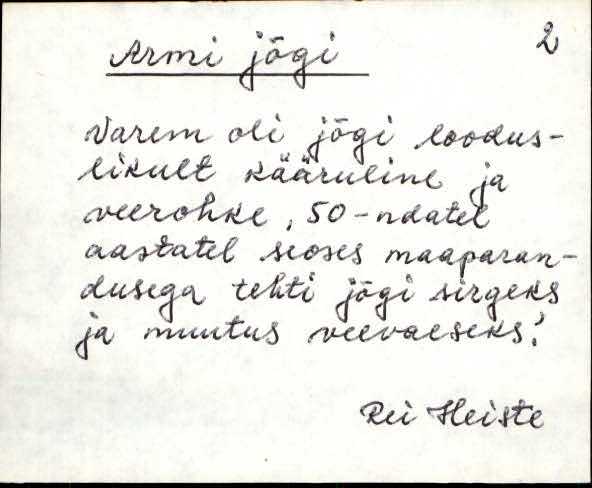 2
Armi jõgi
Varem oli jõgi loodus-
likult kääruline ja
veerohke, 50-ndatel
aastatel seoses maaparan-
dusega tehti jõgi sirgeks
ja muutus veevaeseks!
Rei Heiste